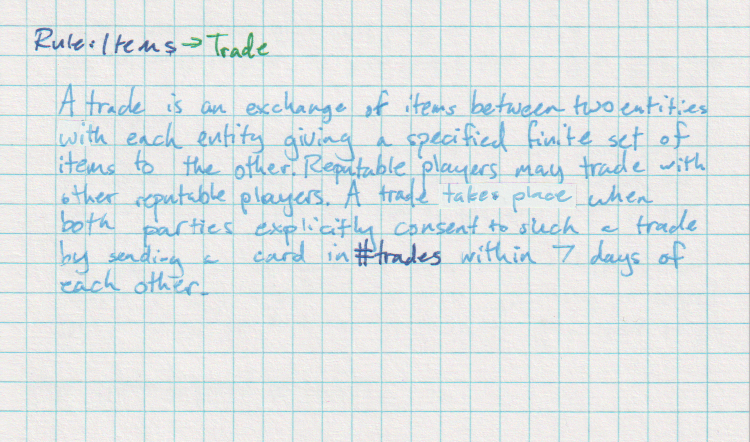 Rule: Items → Trade
A trade is an exchange of items between two entities
with each entity giving a specified finite set of
items to the other. Reputable players may trade with
other reputable players. A trade takes place when
both parties explicitly consent to such a trade
by sending a card in #trades within 7 days of
each other.